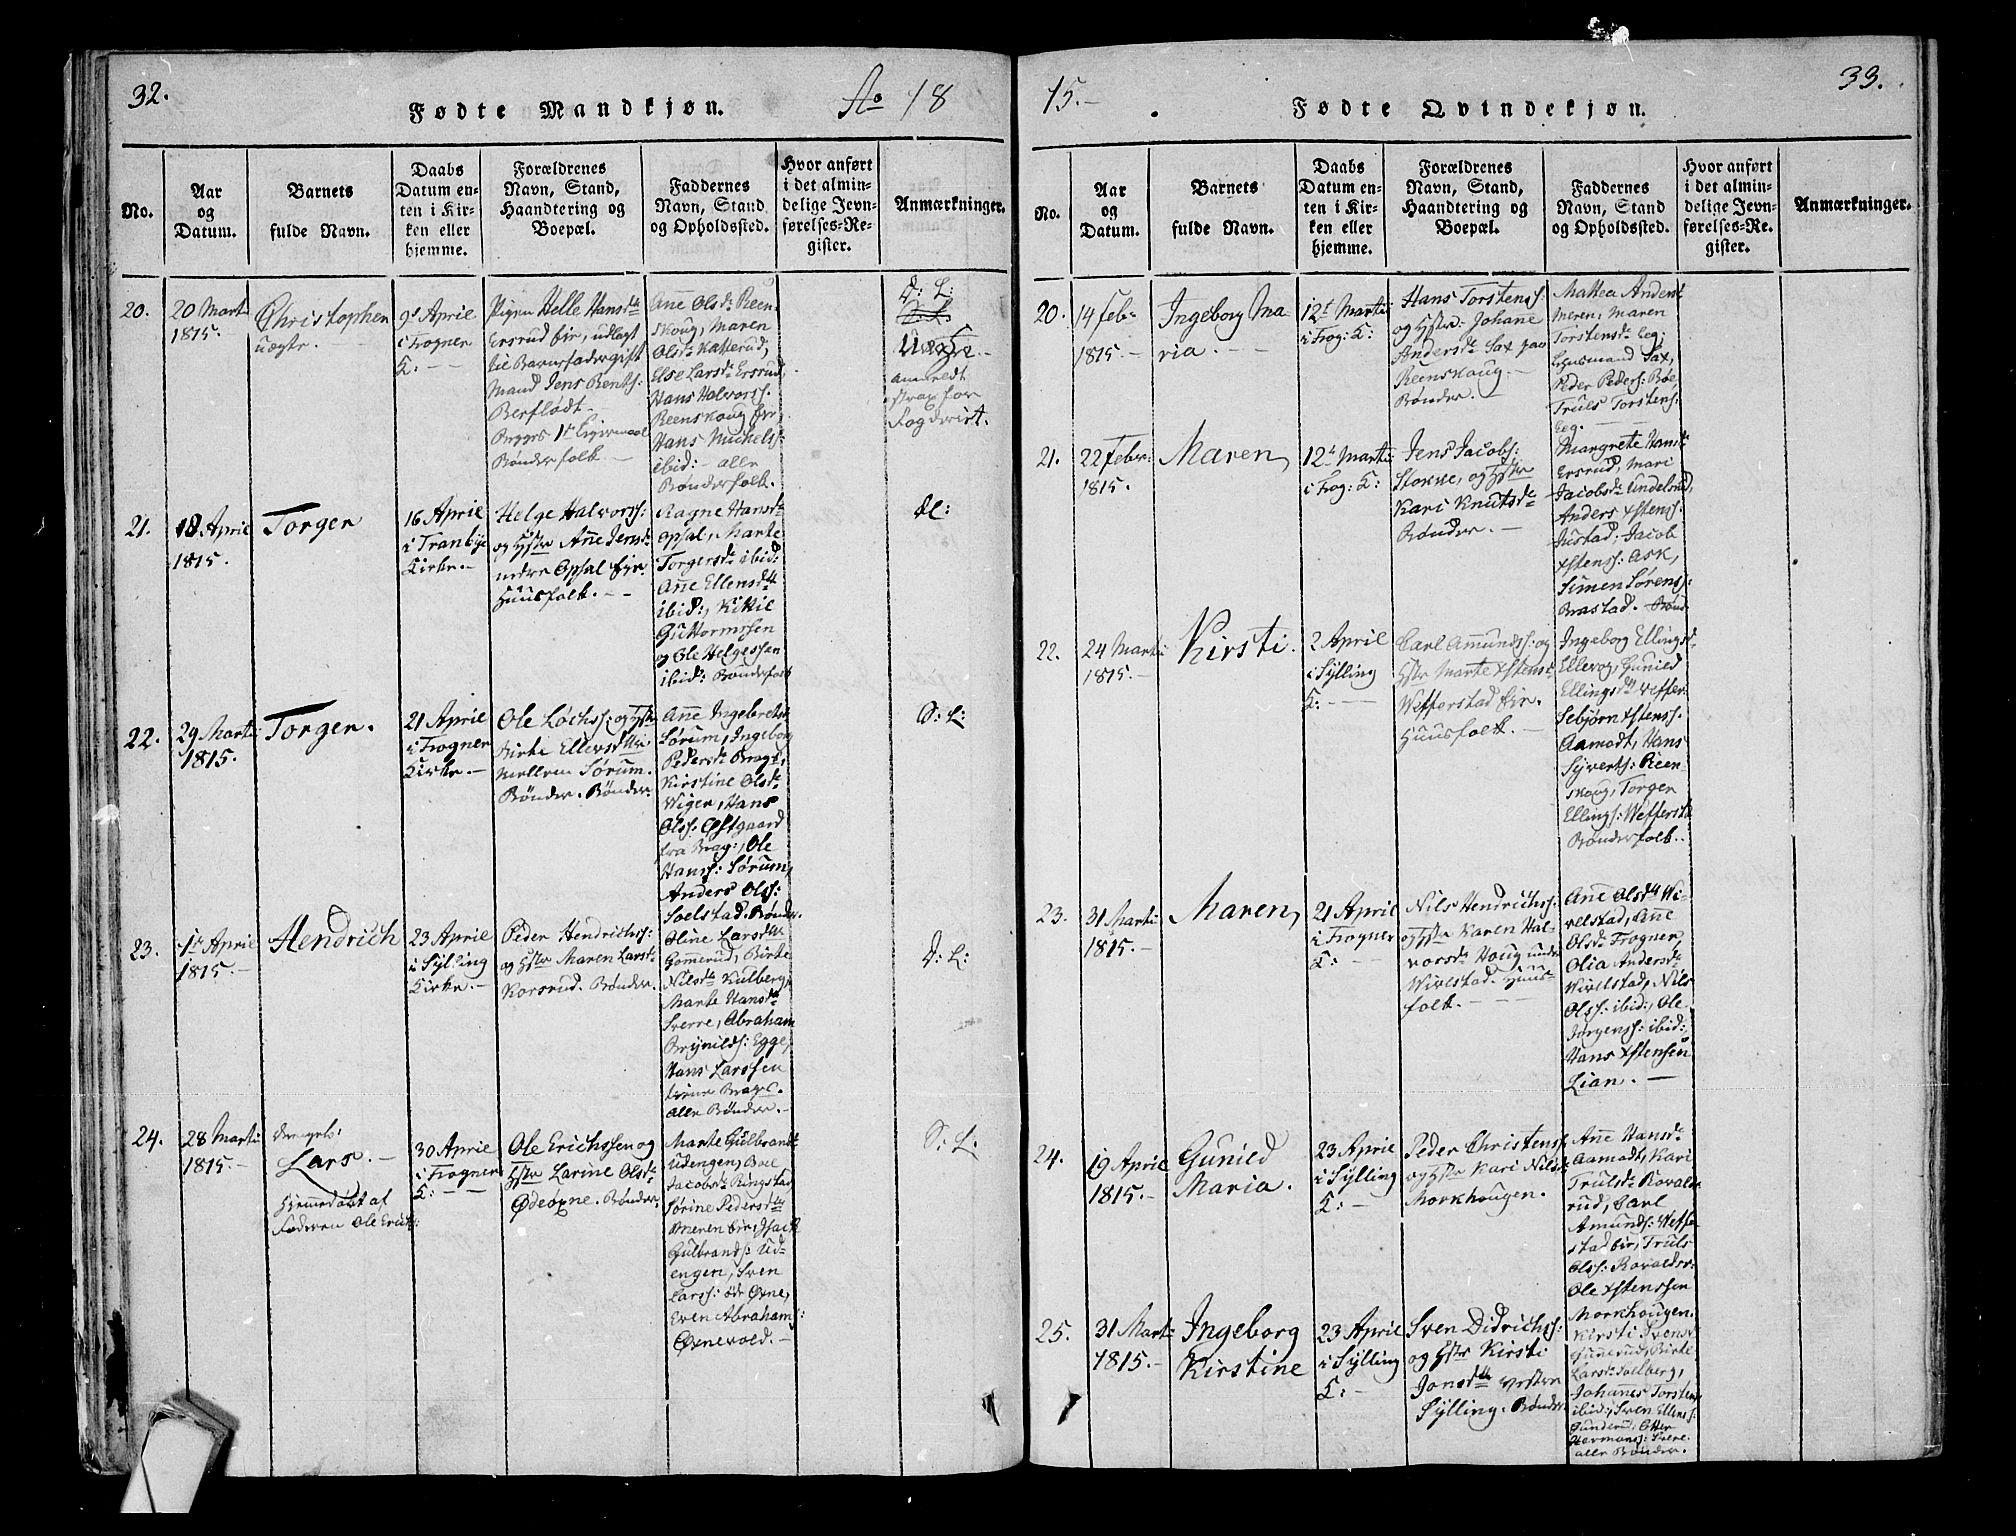 32.
Fødte Mandkjøn.
Ao 18
No.
Aar
og
Datum.
Barnets
fulde Navn.
Daabs
Datum en-
ten i Kir-
ken eller
hjemme.
Forældrenes
Navn, Stand,
Haandtering og
Boepæl.
Faddernes
Navn, Stand
og Opholdssted.
Hvor anført
i det almin-
delige Jevn-
førelses-Re-
gister.
Anmærkninger.
20.
20 Marti
1815.
Christopher
uægte.
9de April
i Frogner
K:
Pigen Helle Hansdr
Ersrud eier, udlagt
til Barnefader gift
Mand Jens Bentss:
Berflødt.
Begges 1te Leiermaal
Bønderfolk
Añe Olsdr Reen-
skoug, Maren
Olsdr Katterud,
Else Larsdr Ersrud,
Hans Halvorss:
Reenskoug eier,
Hans Michelss:
ibid: alle
Bønderfolk.
D: L:
Uægte.
anmeldt
strax for
Fogderiet.
21.
18 April
1815.
Torger
16 April
i Tranbye
Kirke.
Helge Halvorss:
og Hstr Añe Jensdr
nedre Opsal eier
Huusfolk.
Ragne Hansdr
Opsal, Marte
Torgersdr ibid:
Añe Ellensdr
ibid:, Kittil
Guttormssen
og Ole Helgessen
ibid: Bønderfolk
D: L:
22.
29 Marti
1815.
Torger.
21 April
i Frogner
Kirke.
Ole Lochss: og Hstr
Birte Ellevsdr
mellem Sørum.
Bønder. Bønder.
Añe Ingebretsdr
Sørum, Ingeborg
Pedersdr Brage,
Kirstine Olsdr
Wiger, Hans
Olss: Østgaard
fra Brag:, Ole
Hanss: Sørum,
Anders Olss:
Soelstad. Bønder.
D: L:
23.
1te April
1815.
Hendrich
23 April
i Sylling
Kirke.
Peder Hendrichss:
og Hstr Maren Larsdr
Korsrud. Bønder.
Oline Larsdr
Gomerud, Birte
Nilsdr Kulberg,
Marte Hansdr
Sverre, Abraham
Brynilds: Egge,
Hans Larssen
Brage.
alle Bønder.
D: L:
24.
28 Marti
1815.
Lars.
Hjemmedøbt af
Faderen Ole Erichs:
30 April
i Frogner
K:
Ole Erichssen og
Hstr Larine Olsdr
Ødeøxne. Bønder.
Marte Gulbrandsdr
Udengen, Boel
Jacobsdr Ringstad
Sørine Pedersdr
Meren eier, Isach
Gulbrands: Ud-
engen, Sven
Larss: öde Øxne,
Even Abrahams:
Øxnevold.
D: L:
15.
Fødte Qvindekjøn.
33.
No.
Aar
og
Datum.
Barnets
fulde Navn.
Daabs
Datum en-
ten i Kir-
ken eller
hjemme.
Forældrenes
Navn, Stand,
Haandtering og
Boepæl.
Faddernes
Navn, Stand
og Opholdssted.
Hvor anført
i det almin-
delige Jevn-
førelses-Re-
gister.
Anmærkninger.
20.
14 Feb:
1815.
Ingeborg Ma
ria.
12te Marti
i Frog: K:
Hans Torstenss:
og Hstr: Johane
Andersdr Sax paa
Reenskoug.
Bønder.
Mattea Andersdr
Meren, Maren
Torstensdr Eeg,
Lensmand Sax,
Peder Pederss: Bøe,
Truls Torstens:
Eeg.
21.
22 Febr:
1815.
Maren
12te Marti
i Frog: K:
Jens Jacobs:
Stokke, og Hstr
Kari Knutsdr
Bønder.
Margrete Hansdr
Ersrud, Mari
Jacobsdr Undelsrud,
Anders Xstenss:
Justad, Jacob
Xstenss: Ask,
Simen Sørens:
Brastad. Bønd
22.
24 Marti
1815.
Kirsti.
2 April
i Sylling
K:
Carl Amundss: og
Hstr Marte Xstensdr
Wefferstad eier.
Huusfolk.
Ingeborg Ellingsd
Ellevog, Gunild
Ellingsdr Weffer:
Sebjørn Xstenss.
Aamodt, Hans
Syverts: Reen-
skoug, Torger
Ellings: Wefferst
Bønderfolk.
23.
31 Marti
1815.
Maren
21 April
i Frogner
K:
Nils Hendrichss:
og Hstr Karen Hal-
vorsdr Houg under
Wivelstad. Huus-
folk.
Añe Olsdr Wi-
velstad, Añe
Olsdr Frogner,
Olia Andersdr
Wivelstad, Nils
Olss: ibid:, Ole
Jørgenss: ibid:
Hans Xstensen
Lian.
24.
19 April
1815.
Gunild
Maria.
23 April
i Sylling
K:
Peder Christens:
og Hstr Kari Nilsdr
Morkhougen.
Añe Hansdr
Aamodt, Kari
Trulsdr Rovalds
rud, Carl
Amunds: Weffer
stad eier, Truls
Olss: Rovaldsr:
Ole Xstenssen
Morkhougen.
25.
31 Marti
1815.
Ingeborg
Kirstine
23 April
i Sylling
K:
Sven Didrichss:
og Hstr Kirsti
Jonsdr vestre
Sylling. Bønder
Kirsti Svensdr
Gunerud, Birte
Larsdr Solberg,
Johañes Torstens:
ibid:, Sven Ellins:
Gunderud, Otter
Hermans: Svere
alle Bønder.